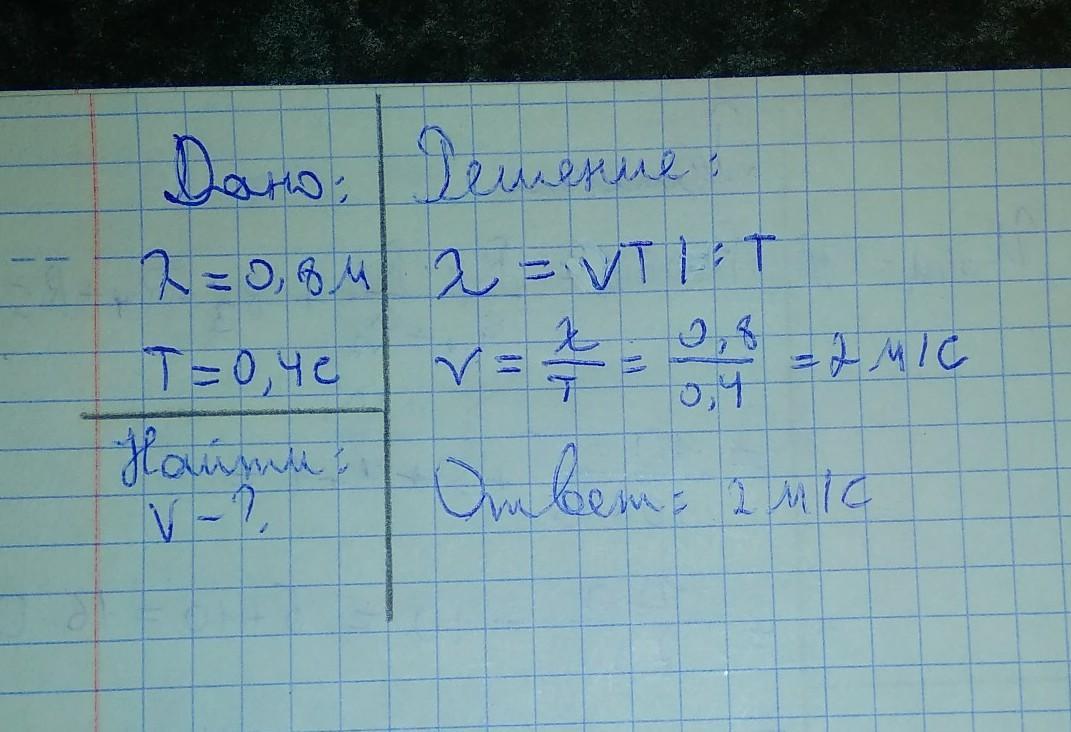 Дано:
λ = 0,8 м
T = 0,4 с
Найти:
V - ?
Решение:
λ = VT | : T
V = λ/T = 0,8/0,4 = 2 м/с
Ответ: 2 м/с